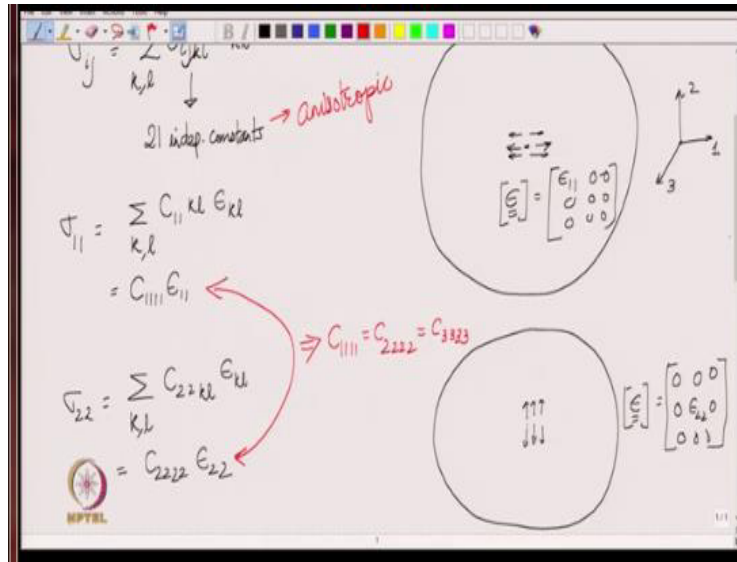 σij = Σ k,l Cijkl
21 indep. constants → anisotropic
σ11 = Σ k,l C11kl ϵkl
= C1111 ϵ11
⇒ C1111 = C2222 = C3333
σ22 = Σ k,l C22kl ϵkl
= C2222 ϵ22
[ϵ] = [ϵ11 0 0
0 0 0
0 0 0]
2
1
3
[ϵ] = [0 0 0
0 ϵ22 0
0 0 0]
NPTEL
1/1